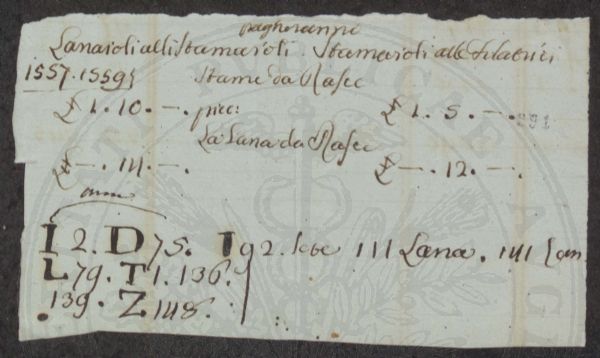 pagheranno
Lanaioli alli Stamaioli. Stamaioli alle Filatrici
1557.1559}
Stame da Rasce
£ 1. 10. —. più: £ 1. 5. —.
291
La Lana da Rasce
£ —. 14. —. £ —. 12. —.
I 2. D 75. I 92. sete 111 Lana. 141 Lan
L 79. T 1. 136.
. 139. Z 148.